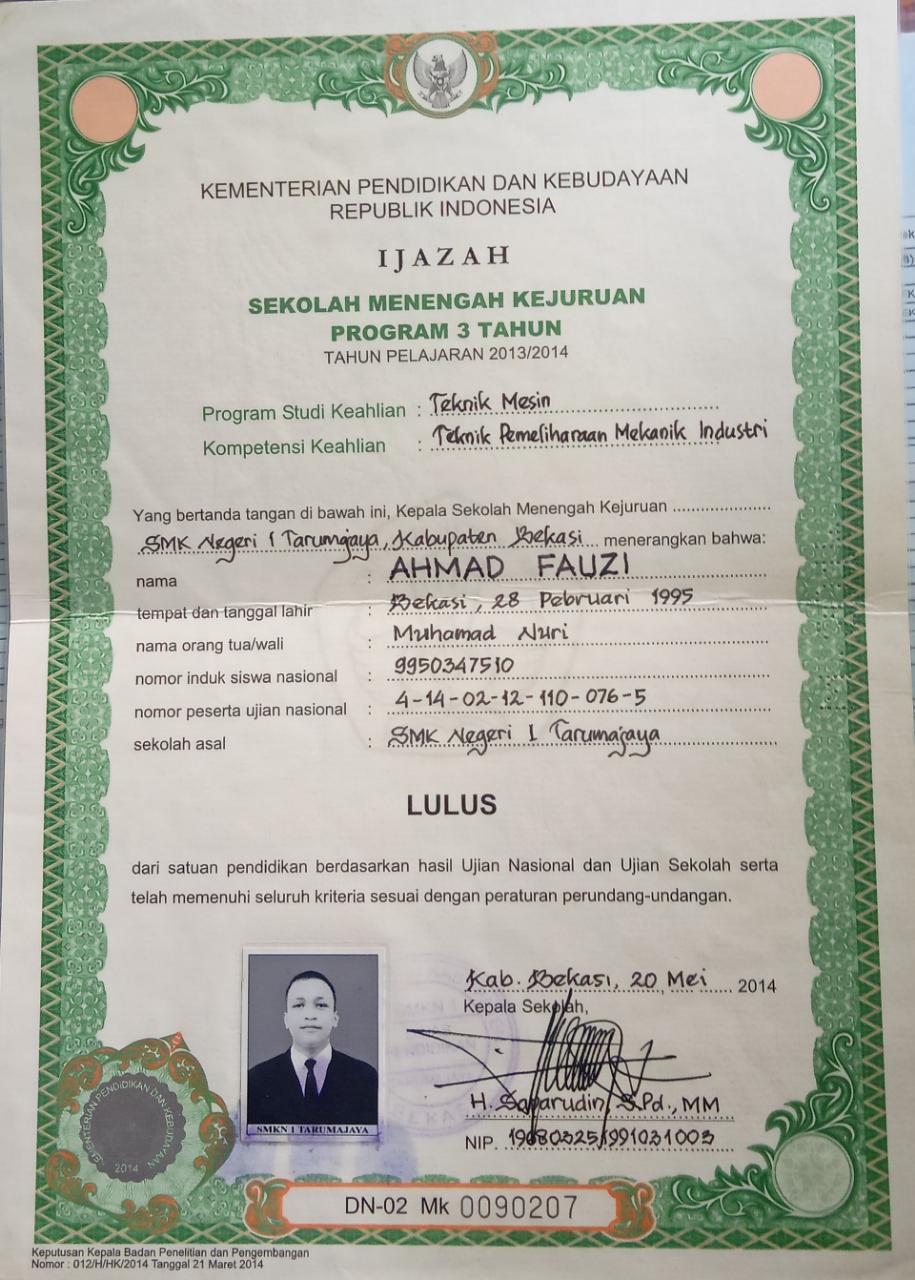 KEMENTERIAN PENDIDIKAN DAN KEBUDAYAAN
REPUBLIK INDONESIA
IJAZAH
SEKOLAH MENENGAH KEJURUAN
PROGRAM 3 TAHUN
TAHUN PELAJARAN 2013/2014
Program Studi Keahlian : Teknik Mesin
Kompetensi Keahlian : Teknik Pemeliharaan Mekanik Industri
Yang bertanda tangan di bawah ini, Kepala Sekolah Menengah Kejuruan
SMK Negeri 1 Tarumajaya, Kabupaten Bekasi menerangkan bahwa:
nama : AHMAD FAUZI
tempat dan tanggal lahir : Bekasi, 28 Pebruari 1995
nama orang tua/wali : Muhamad Nuri
nomor induk siswa nasional : 9950347510
nomor peserta ujian nasional : 4-14-02-12-110-076-5
sekolah asal : SMK Negeri 1 Tarumajaya
LULUS
dari satuan pendidikan berdasarkan hasil Ujian Nasional dan Ujian Sekolah serta
telah memenuhi seluruh kriteria sesuai dengan peraturan perundang-undangan.
Kab. Bekasi, 20 Mei 2014
Kepala Sekolah,
H. Saparudin, S.Pd., MM
NIP. 196803251991031003
SMKN 1 TARUMAJAYA
KEMENTERIAN PENDIDIKAN DAN KEBUDAYAAN
2014
DN-02 Mk 0090207
Keputusan Kepala Badan Penelitian dan Pengembangan
Nomor : 012/H/HK/2014 Tanggal 21 Maret 2014